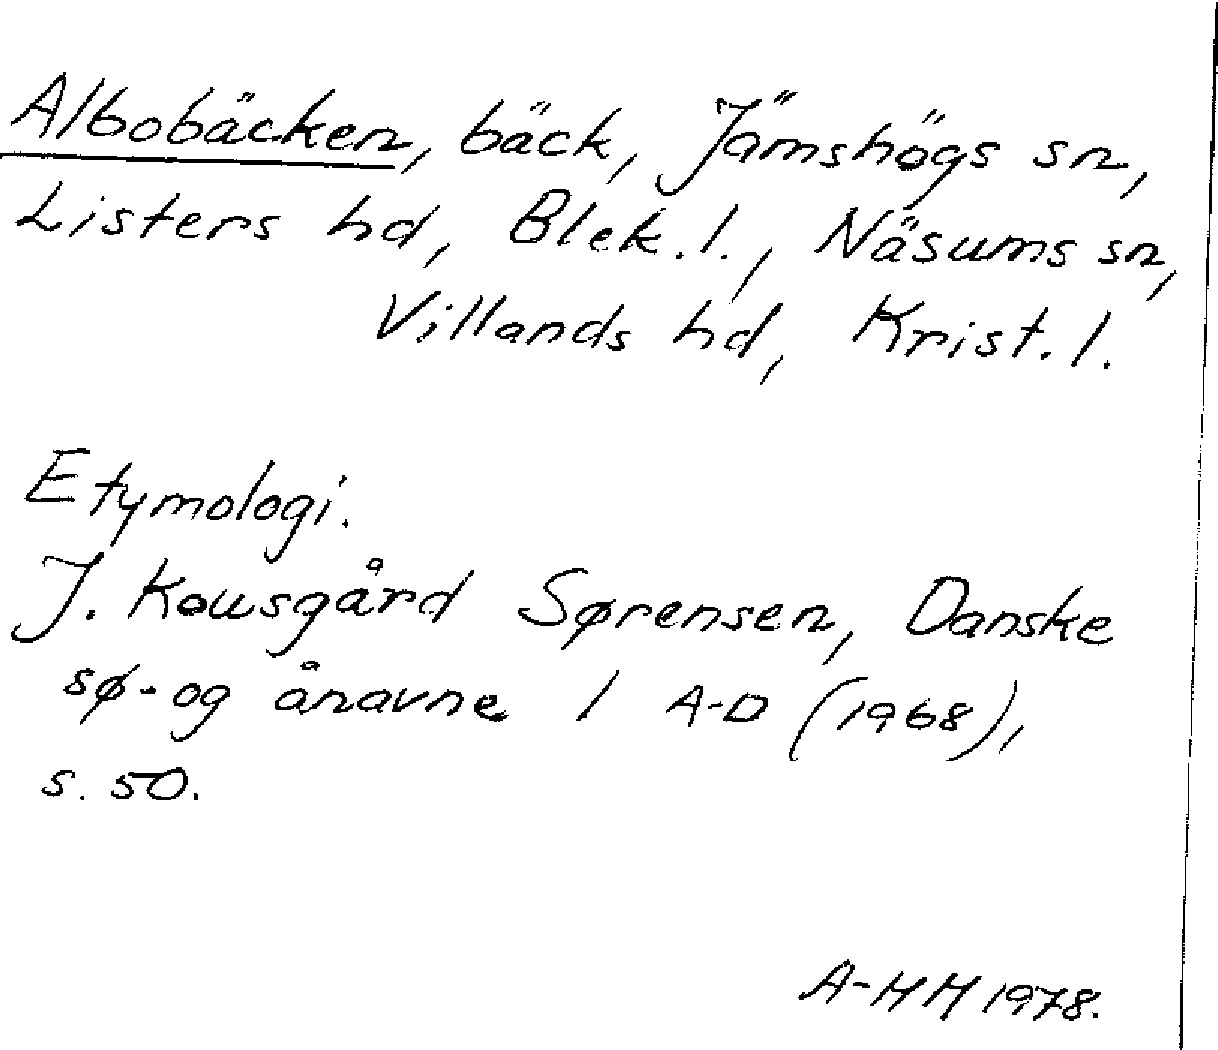 Albobäcken, bäck, Jämshögs sn,
Listers hd, Blek. l., Näsums sn,
Villands hd, Krist. l.
Etymologi.
J. Kousgård Sørensen, Danske
sø- og ånavne 1 A-D (1968),
s. 50.
A-HH 1978.